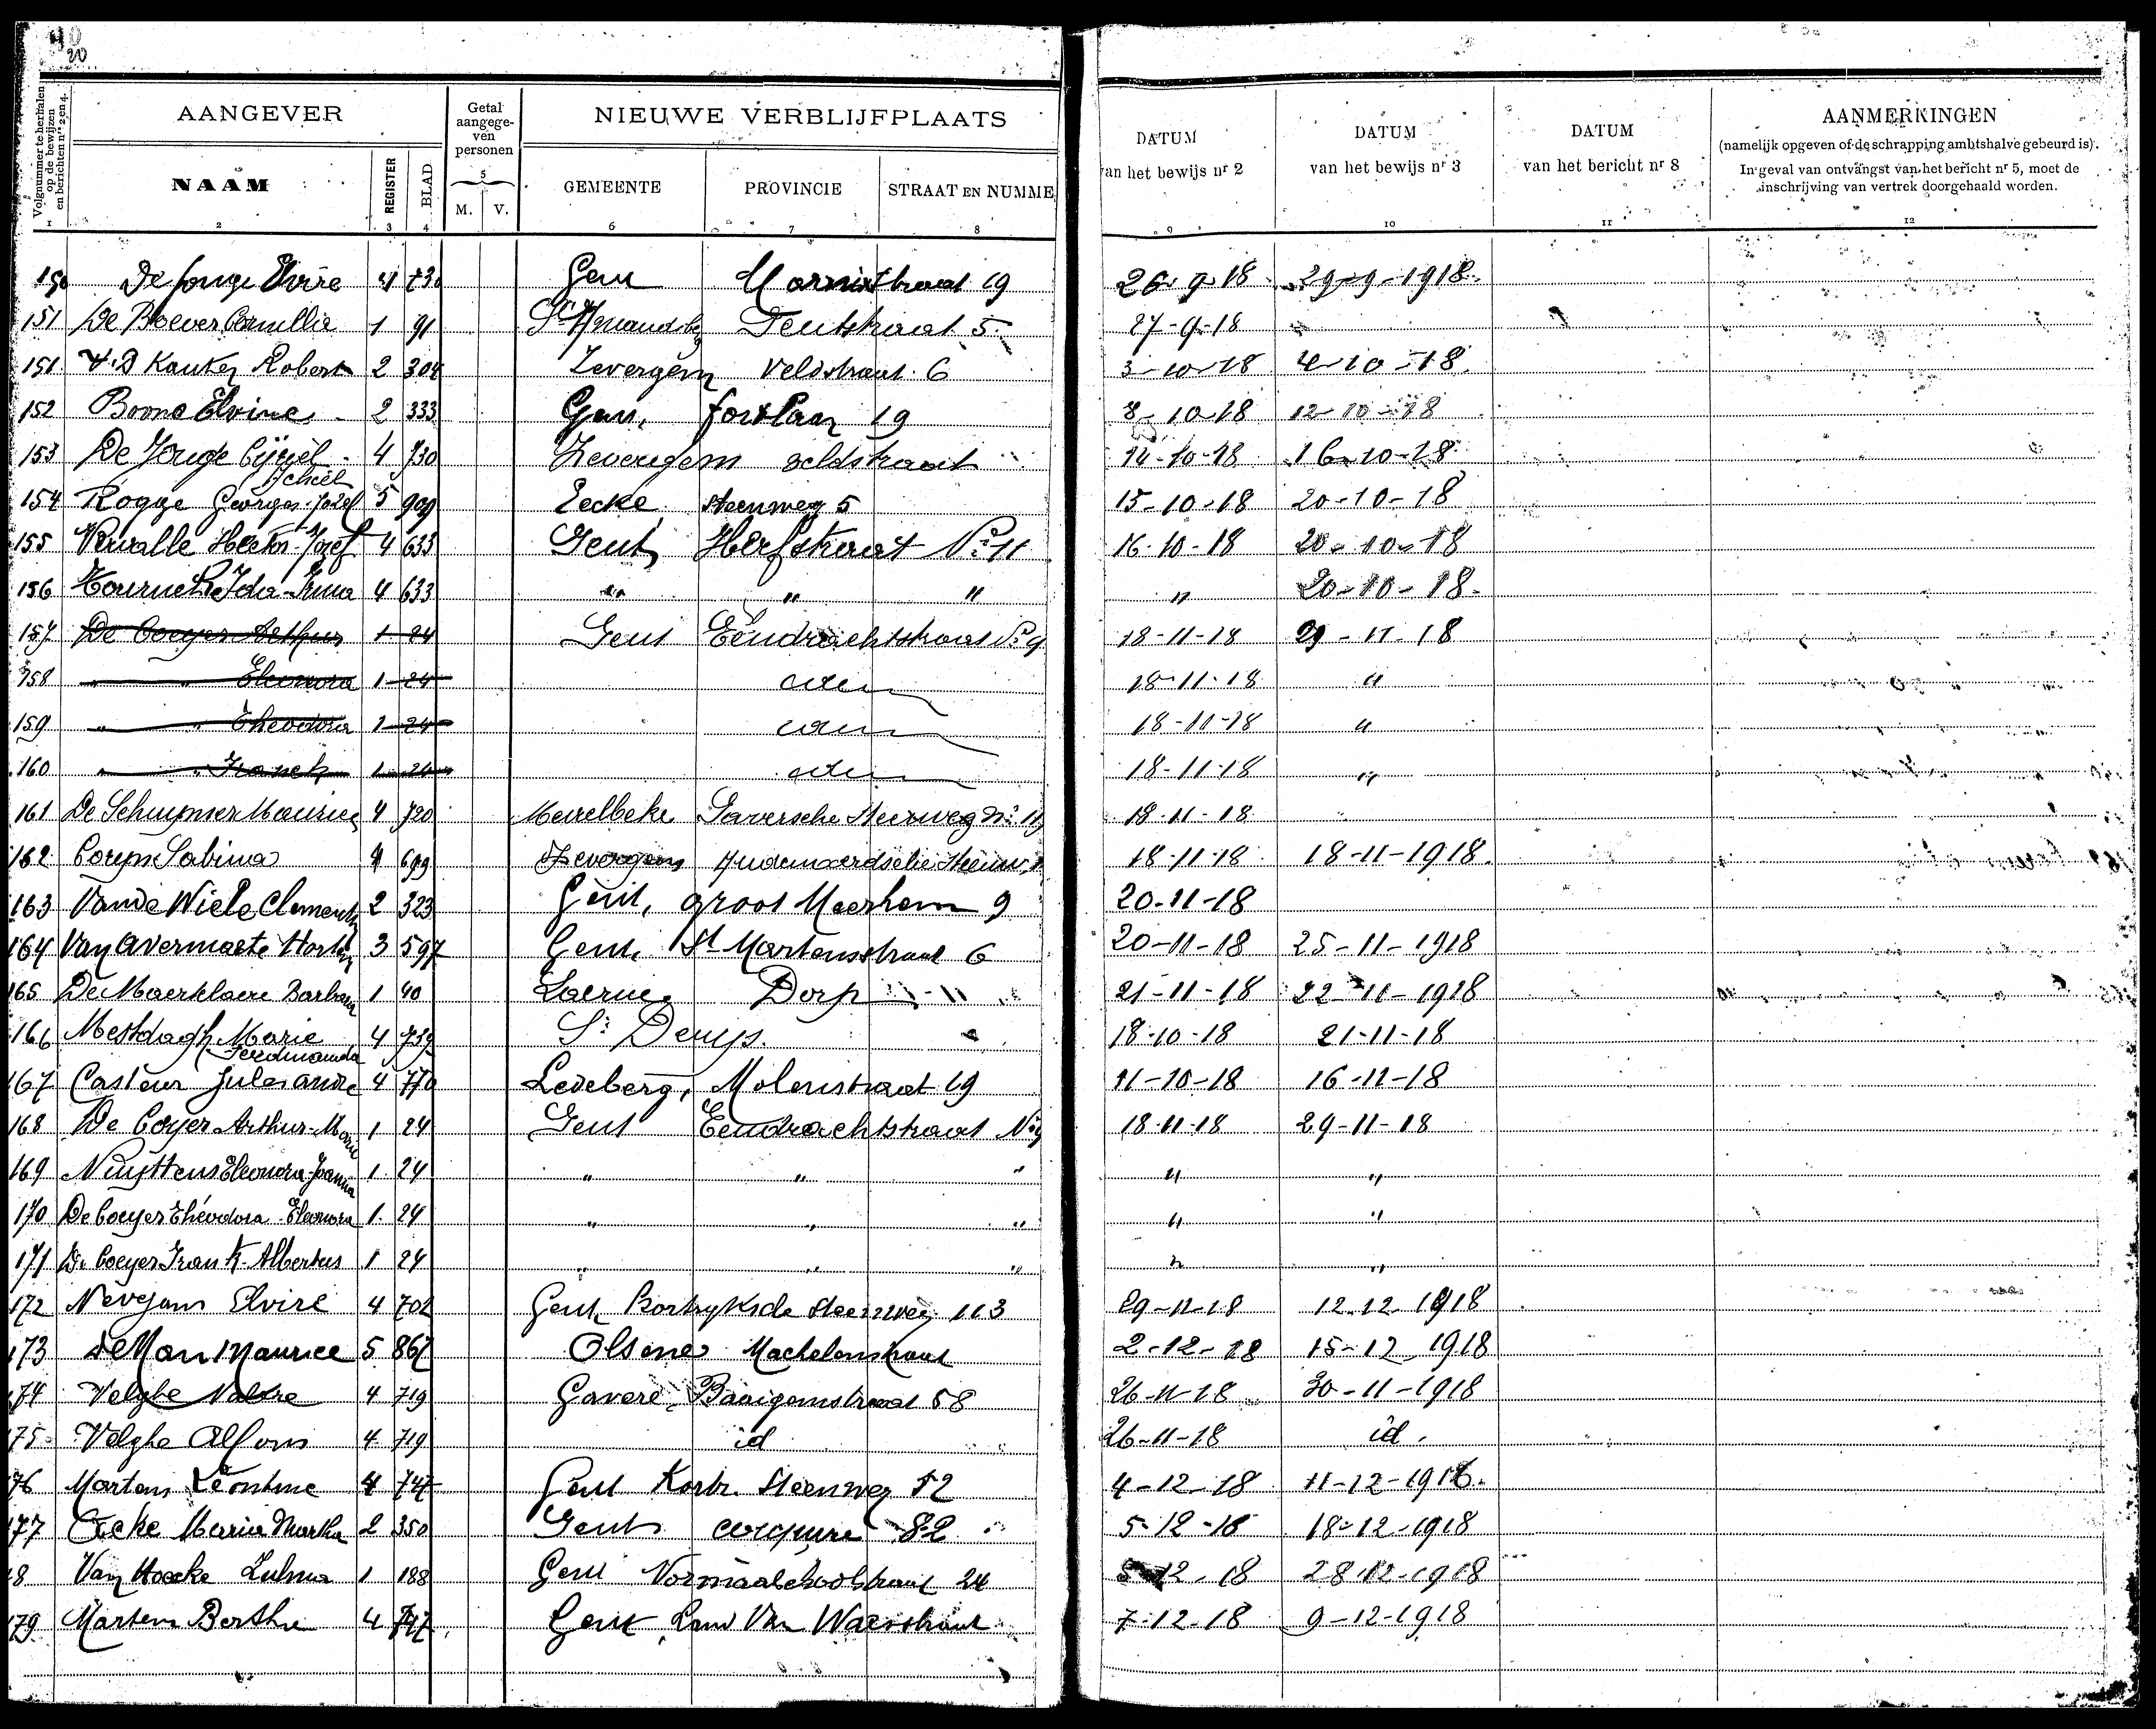 20
Volgnummer te herhalen op de bewijzen en berichten nrs 2 en 4.
AANGEVER
Getal aangegeven personen
NIEUWE VERBLIJFPLAATS
DATUM van het bewijs nr 2
DATUM van het bewijs nr 3
DATUM van het bericht nr 8
AANMERKINGEN
(namelijk opgeven of de schrapping ambtshalve gebeurd is).
In geval van ontvangst van het bericht nr 5, moet de inschrijving van vertrek doorgehaald worden.
NAAM REGISTER BLAD M. V. GEMEENTE PROVINCIE STRAAT EN NUMME
1 2 3 4 5 6 7 8 9 10 11 12
150 De Jonge Elvire 4 730 Gent Marnixstraat 19 26-9-18 29-9-1918
151 De Boever 1 91 St Amandsbg 5 27-9-18
151 V.D Kauter Robert 2 304 Zevergem Veldstraat 6 3-10-18 4-10-18
152 Boone Elvine 2 333 Gent, fortlaan 19 8-10-18 12-10-18
153 De Jonge 4 730 Zevergem veldstraat 14-10-18 16-10-18
154 Rogge Georges Jozef Achiel 5 909 Eecke steenweg 5 15-10-18 20-10-18
155 Verwalle Hector-Jozef 4 633 Gent Herfstraat No 11 16-10-18 20-10-18
156 Ida-Irma 4 633 " " " " 20-10-18
157 De Coeyer Arthur 1 24 Gent Eendrachtstraat No 9 18-11-18 29-11-18
158 " " Eleonora 1 24 idem 18-11-18 "
159 " " Theodora 1 24 idem 18-11-18 "
160 " " Franck 1 24 idem 18-11-18 "
161 De Schuymer Maurice 4 720 Meirelbeke Gaversche Steenweg No 18-11-18
162 Coryn Sabina 4 699 Zevergem Audenaerdsche Steenw. 18-11-18 18-11-1918
163 Van de Wiele Clemence 2 323 Gent, groot Meerhem 9 20-11-18
164 Van Avermaete 3 597 Gent, St Martensstraat 6 20-11-18 25-11-1918
165 De Maerklaere Barbara 1 40 Laerne Dorp 21-11-18 22-11-1918
166 Mestdagh Marie Ferdinanda 4 739 St Denys. 18-10-18 21-11-18
167 Casteur Jules André 4 770 Ledeberg, Molenstraat 19 11-10-18 16-11-18
168 De Coeyer Arthur-Marie 1 24 Gent Eendrachtstraat No 9 18-11-18 29-11-18
169 Nuyttens Eleonora-Joanna 1 24 " " " " "
170 De Coeyer Théodora-Eleonora 1 24 " " " " "
171 De Coeyer Frank-Albertus 1 24 " " " " "
172 Nevejans Elvire 4 702 Gent, Kortryksde steenweg 113 29-11-18 12.12.1918
173 De Man Maurice 5 867 Olsene Machelenstraat 2-12-18 15-12-1918
174 Velghe 4 719 Gavere, Baaigemstraat 58 26-11-18 30-11-1918
175 Velghe Alfons 4 719 id 26-11-18 id.
76 Martens Léontine 4 747 Gent Kortr. Steenweg 52 4-12-18 11-12-1918.
177 Maria Martha 2 350 Gent coupure 82 5-12-18 18-12-1918
8 Van Hoecke Zulma 1 188 Gent Normaalschoolstraat 24 5-12-18 28-12-1918
179 Martens Bertha 4 747 Gent Land Van Waesstraat 7-12-18 9-12-1918